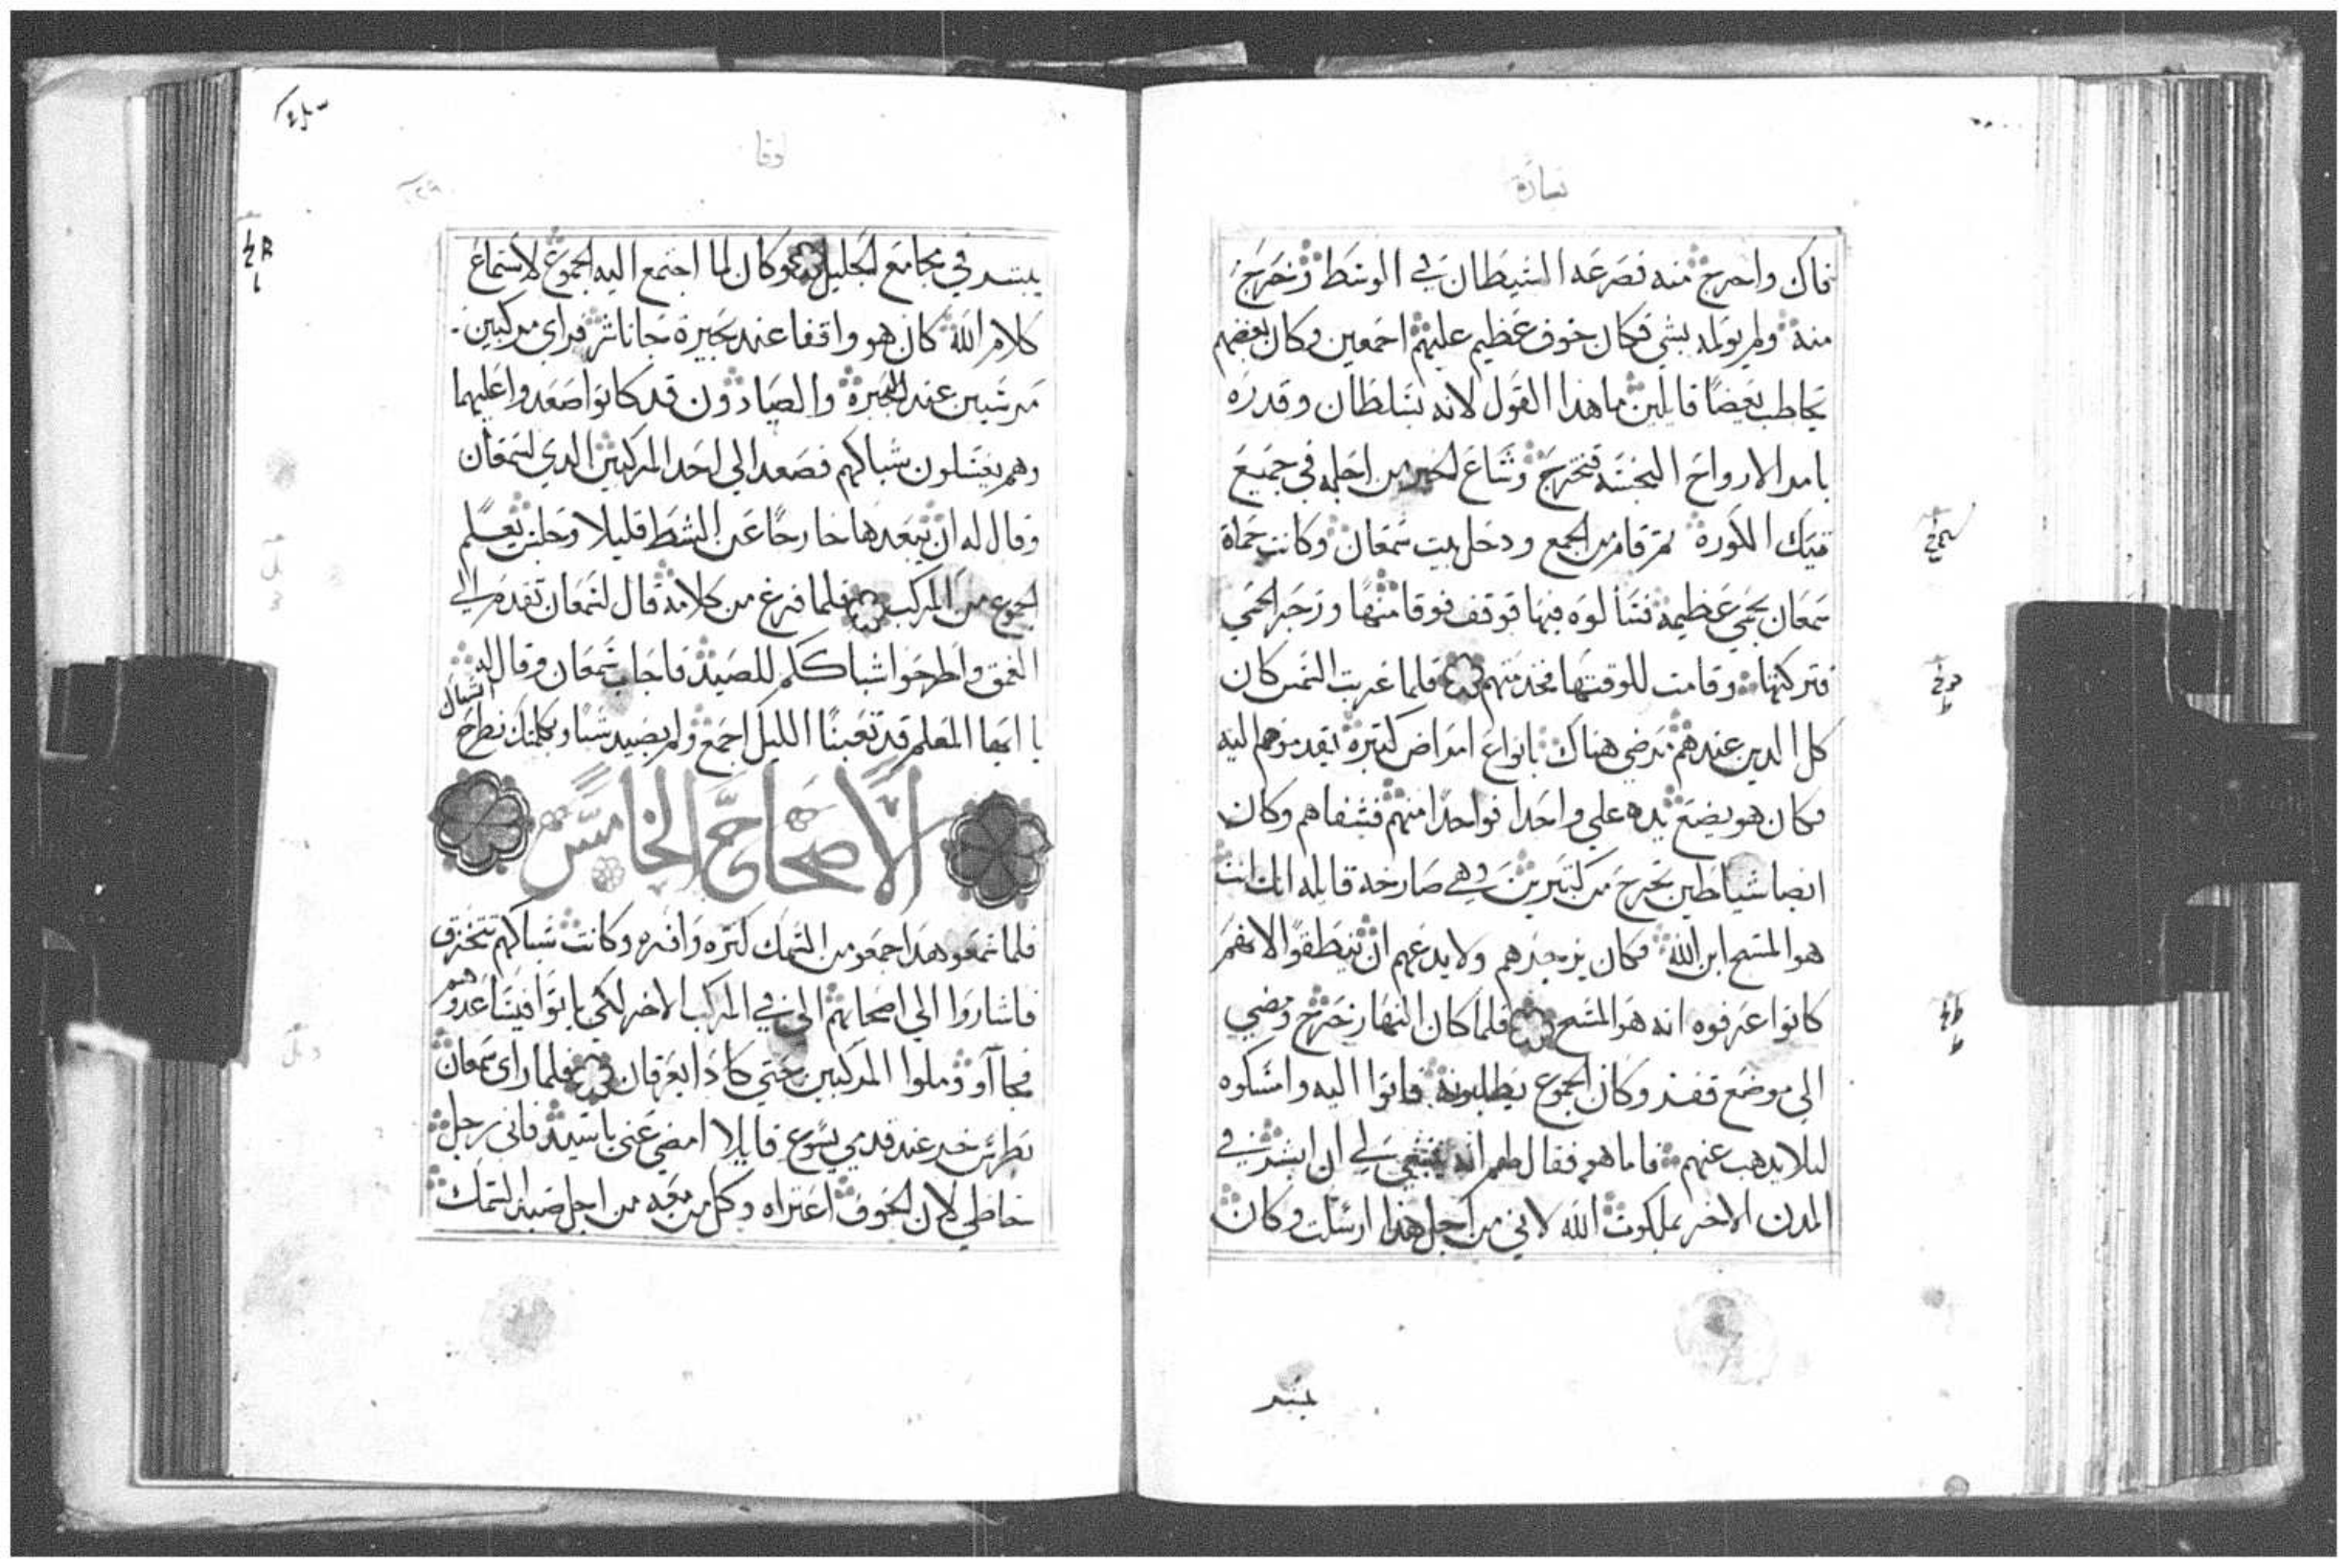 بشارة
فاك واخرج منه فصرعه الشيطان في الوسط وخرج
منه ولم يولمه بشي فكان خوف عظيم عليهم اجمعين وكان بعضهم
يخاطب بعضًا قايلين ما هذا القول لانه بسلطان وقدره
يامر الارواح النجسه فتخرج وشاع الخبر من اجله في جميع
تيك الكوره ثم قام من الجمع ودخل بيت سمعان وكانت حماة
سمعان بحمي عظيمه فسالوه فيها فوقف فوقا منها وزجر الحمي
فتركتها وقامت للوقتها فخدمتهم فلما غربت الشمس كان
كل الدين عندهم مرضي هناك بانواع امراض كتيره يقدموهم اليه
فكان هو يضع يده علي واحدا فواحدا منهم فشفاهم وكان
ايضا شياطين تخرج من كتيرين وهي صارخه قايله انك انت
هو المسيح ابن الله فكان يزجرهم ولا يدعهم ان ينطقوا لانهم
كانوا عرفوه انه هو المسيح فلما كان النهار خرج ومضي
الي موضع قفر وكان الجموع يطلبونه فاتوا اليه وامسكوه
ليلا يدهب عنهم فاما هو فقال لهم انه ينبغي لي ان ابشر في
المدن الاخر بملكوت الله لاني من اجل هذا ارسلت وكان
يبشر
لوقا
يبشر في مجامع الجليل وكان لما اجتمع اليه الجموع لاستماع
كلام الله كان هو واقفا عند بحيرة جاناشر فراي مركبين
مرسيين عند البحيرة والصيادون قد كانوا صعدوا عليهما
وهم يغسلون شباكهم فصعد الي احد المركبين الدي لسمعان
وقال له ان يبعدها خارجًا عن الشط قليلا وجلس يعلم
الجموع من المركب فلما فرغ من كلامه قال لسمعان تقدم الي
العمق واطرحوا شباككم للصيد فاجاب سمعان وقال له
يا ايها المعلم قد تعبنا الليل اجمع ولم نصيد شيا وبكلمتك نطرح
الشباك
الاصحاح الخامس
فلما سمعو هدا جمعو من السمك كتره وافره وكانت شباكهم تتخزق
فاشاروا الي اصحابهم الدي في المركب الاخر لكي ياتوا فيساعدوهم
فجاآو وملوا المركبين حتي كادا يغرقان فلما راى سمعان
بطرس خر عند قدمي يسوع قايلا امضي عني يا سيد فاني رجل
خاطي لان الخوف اعتراه وكل من معه من اجل صيد السمك